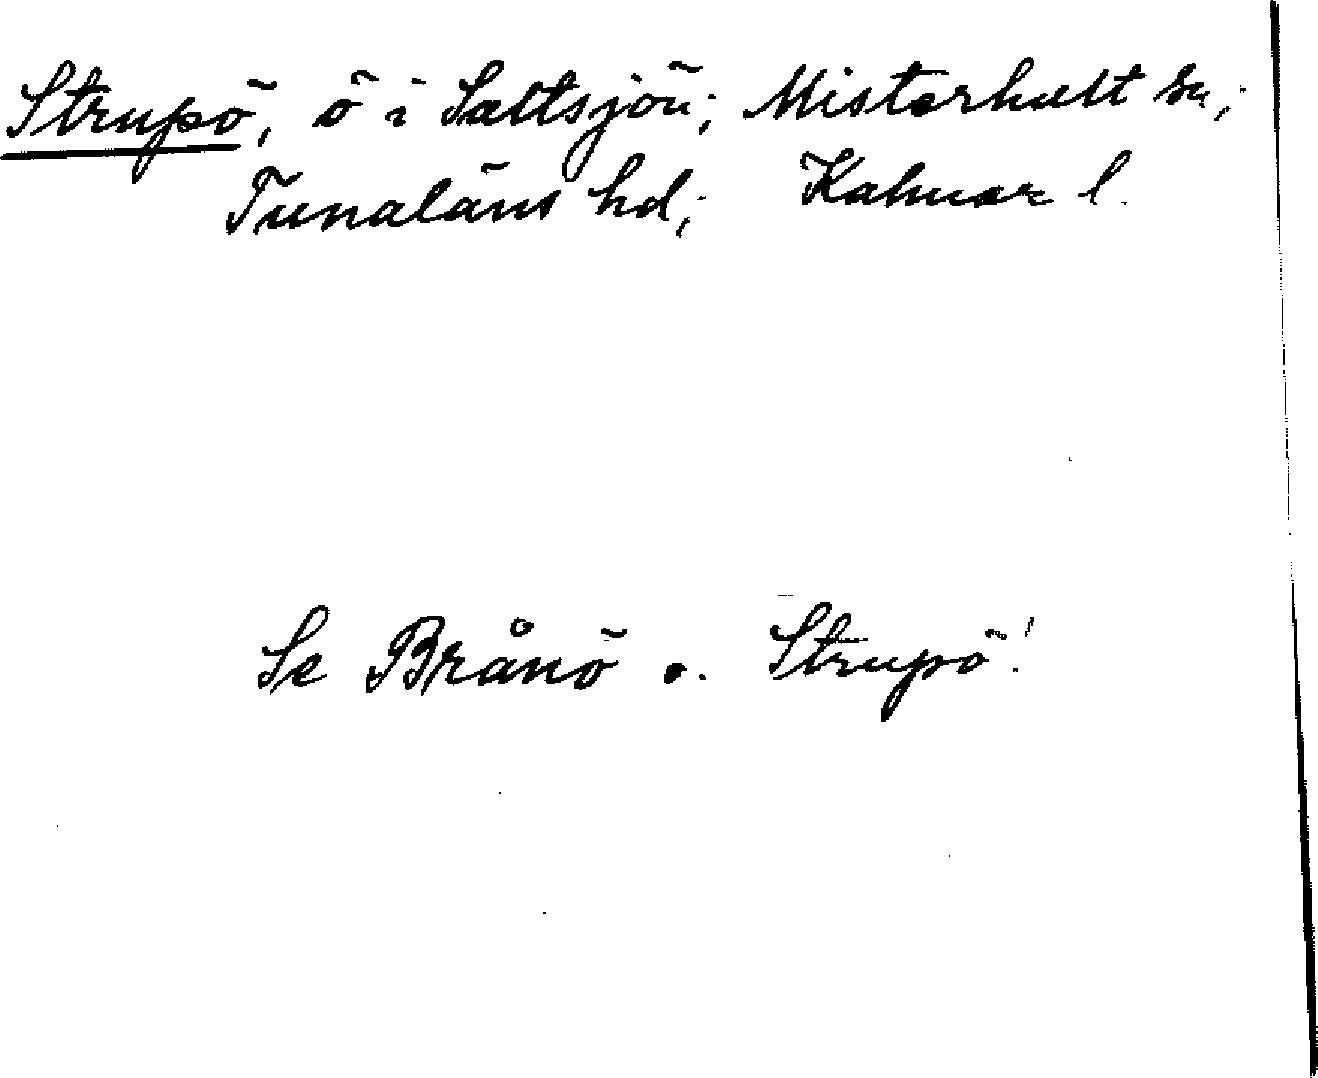 Strupö, ö i Saltsjön; Misterhult sn;
Tunaläns hd; Kalmar l.
Se Brånö o. Strupö!